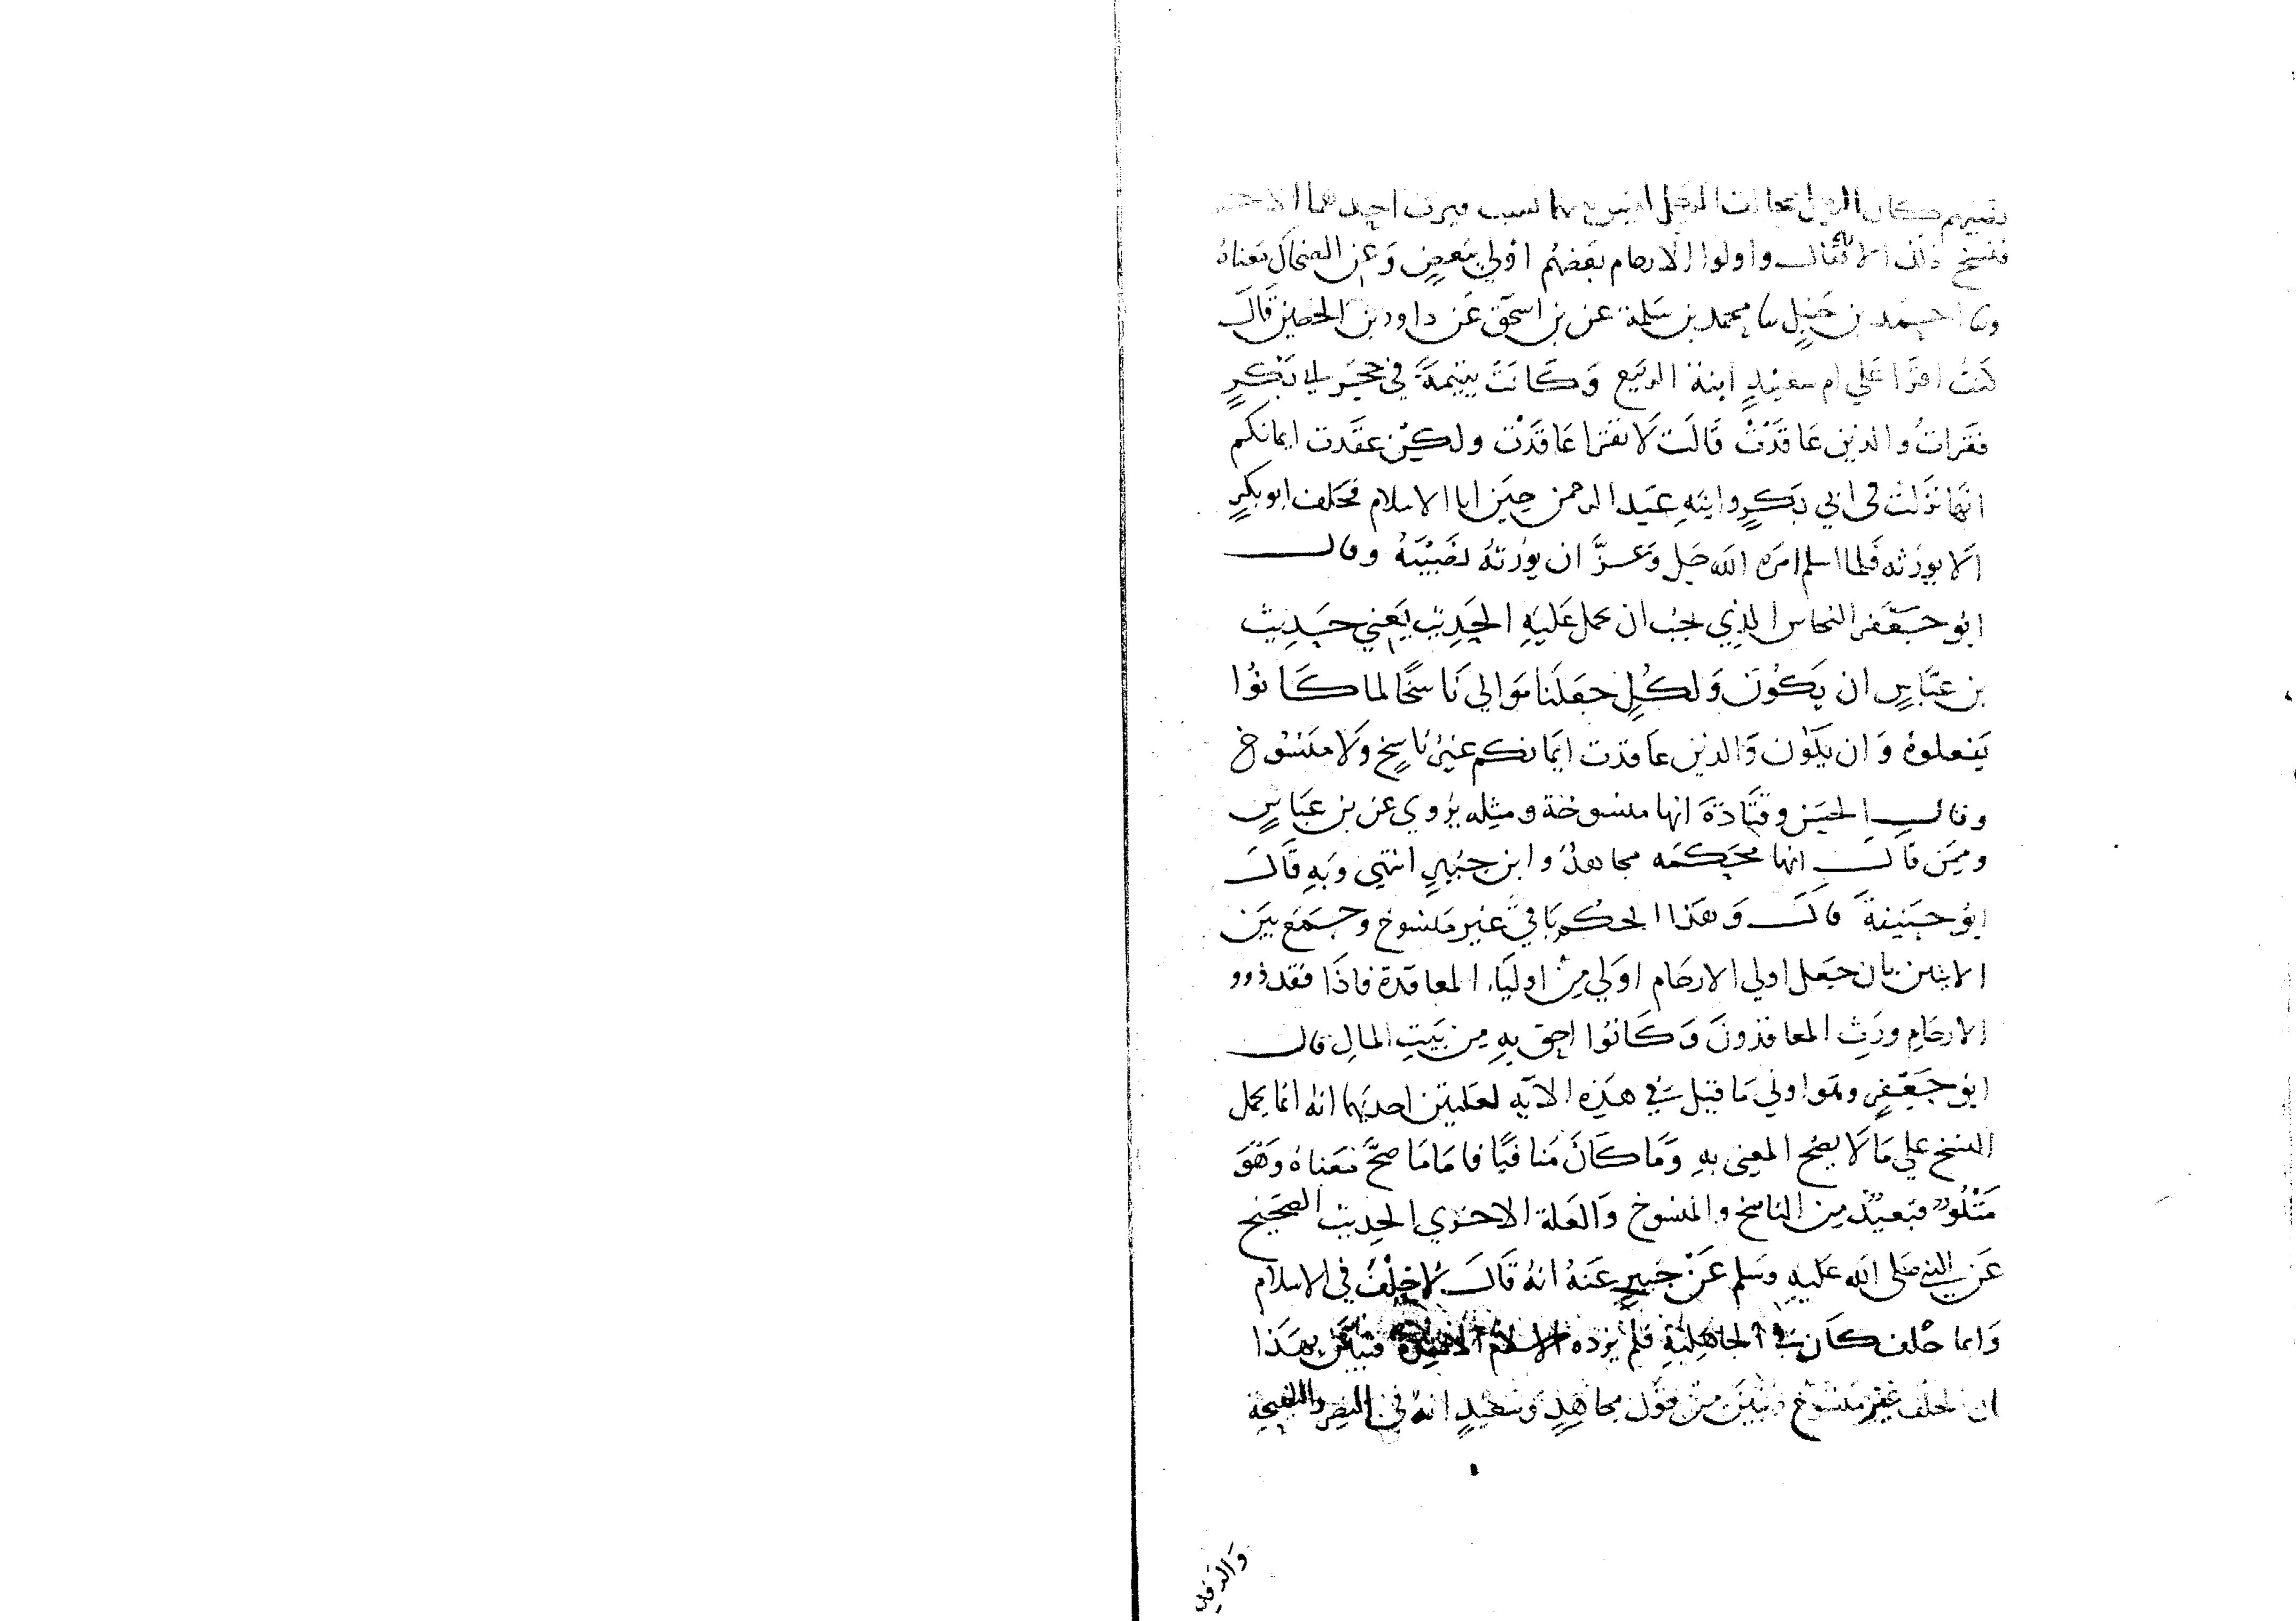 نصيبهم كان الرجل يحالف الرجل ليس بينهما نسب فيرث احدهما الاخر
فنسخ ذلك الانفال واولوا الارحام بعضهم اولي ببعض وعن الضحاك معناه
احمد بن حنبل محمد بن سلمة عن بن اسحق عن داود بن الحصين قال
كنت اقرا علي ام سعيد ابنة الربيع وكانت يتيمة في حجر ابي بكر
فقرات والذين عاقدت قالت لا تقرا عاقدت ولكن عقدت ايمانكم
انما نزلت في ابي بكر وابنه عبد الرحمن حين ابا الاسلام فحلف ابو بكر
الا يورثه فلما اسلم امره الله جل وعز ان يورثه نصيبه وقال
ابو جعفر النحاس الذي يجب ان يحمل عليه الحديث يعني حديث
بن عباس ان يكون ولكل جعلنا موالي ناسخا لما كانوا
يفعلوه وان يكون والذين عاقدت ايمانكم غير ناسخ ولا منسوخ
وقال الحسن وقتادة انها منسوخة ومثله يروي عن بن عباس
وممن قال انها محكمه مجاهد وابن جبير انتهي وبه قال
ابو حنيفة قال وهذا الحكم باقي غير منسوخ وجمع بين
الايتين بان جعل اولي الارحام اولي من اولياء المعاقدة فاذا فقد ذوو
الارحام ورث المعاقدون وكانوا احق به من بيت المال قال
ابو جعفر وهو اولي ما قيل في هذه الايه لعلتين احديهما انه انما يحمل
النسخ علي ما لا يصح المعني به وما كان منافيا فاما ما صح معناه وهو
متلو فبعيد من الناسخ والمنسوخ والعلة الاخري الحديث الصحيح
عن النبي صلى الله عليه وسلم عن جبير عنه انه قال لا حلف في الاسلام
وايما حلف كان في الجاهلية فلم يزده الاسلام الا شدة فتبين بهذا
ان الحلف غير منسوخ وتبين من قول مجاهد وسعيد انه في النصر والنصيحة